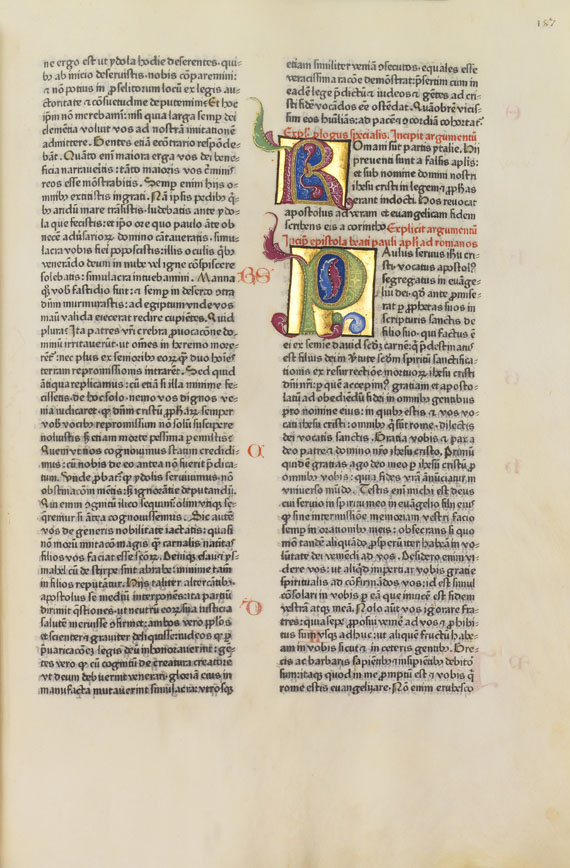 187
ne ergo est ut ydola hodie deserentes· qui-
bus ab inicio deseruistis· nobis cōparemini:
⁊ nō potius in ꝓselitorum locū ex legis au-
ctoritate ⁊ cōsuetudine deputemini· Et hoc
ipm̄ nō merebamini: nisi quia larga semp dei
clemētia voluit vos ad nostrā imitationē
admittere. Gentes etiā ecōtrario respōde-
bāt. Quāto eni maiora erga vos dei bene-
ficia narraueritis: tāto maioris vos crīminis
reos esse mōstrabitis. Semp enim hijs o-
mnibꝫ extitistis ingrati. Nā ipsis pedibꝫ qui-
bꝫ aridū mare trāsistis: ludebatis ante ydo-
la que fecistis: et ipo ore quo paulo āte ob
necē aduersarioꝝ domino cātaueratis· simu-
lacra vobis fieri poposcistis: illis oculis quibꝫ
venerādo deum in nube vel igne cōspicere
solebatis: simulacra intuebamini. Manna
qꝫ vobis fastidio fuit: ⁊ semp in deserto cōtra
dn̄m murmurastis: ad egiptum vnde vos
manu valida eiecerat redire cupiētes. Quid
plura: Ita patres vr̄i crebra ꝓuocacōne do-
minū irritauerūt· ut omēs in heremo more-
rēt̄: nec plus ex senioribꝫ eoꝝ qꝫ duo hoīes
terram repromissionis intrarēt. Sed quid
ātiqua replicamus: cū etiā si illa minime fe-
cissetis· de hoc solo· nemo vos dignos ve-
nia iudicaret: qꝫ dn̄m cristū ꝓphetaꝝ semper
vobis vocibꝫ repromissum nō solū suscipere
noluistis: sꝫ etiam morte pessima peremistis·
Quem ut nos cognouimus statim credidi-
mus: cū nobis de eo antea nō fuerit p̄dica-
tum. Vnde ꝓbatᷣ qꝫ ydolis seruiuimus· nō
obstinacōni mētis: sꝫ ignorātie deputandū.
Qui enim agnitū ilico sequimᷣ· olim vtiqꝫ se-
queremᷣ si ātea cognouissemus. Sic autē
vos de generis nobilitate iactatis: quasi
nō morū imitacō magis qꝫ carnalis natiuitas
filios vos faciat esse scōꝝ. Deniqꝫ esau et ys-
mahel cū de stirpe sint abrahe: minime tamē
in filios reputātur. Hijs taliter altercātibꝫ·
apostolus se mediū interponens: ita partiū
dirimit q̄stiones· ut neutrū eoꝝ sua iusticia
salutē meruisse cōfirmet: ambos vero ꝓplos
et scienter ⁊ grauiter deliquisse: iudeos qꝫ ꝑ
p̄uaricacōnē legis deū inhonorauerint: gē-
tes vero qꝫ cū cognitū de creatura creatorē
vt deum debuerint venerari· gloriā eius in
manufacta mutauerint simulacra: vtrosqꝫ
etiam similiter veniā ꝯsecutos· equales esse
veracissima racōne demōstrat: p̄sertim cum in
eadē lege p̄dictū ⁊ iudeos ⁊ gētes ad cri-
sti fidē vocādos eē ostēdat. Quāobrē vicis-
sim eos huiliās: ad pacē ⁊ cōcordiā cohortatᷣ.
Expl' ꝓlogus specialis. Incipit argumentū
Romani sunt partis ytalie. Hij
preuenti sunt a falsis aplis:
et sub nomine domini nostri
ihesu cristi in legem ⁊ ꝓphetas
erant inducti. Hos reuocat
apostolus ad veram et euangelicam fidem
scribens eis a corintho· Explicit argumentū
Incip̄ epistola beati pauli apli ad romanos
Paulus seruus ihu cri-
sti· vocatus apostolus·
segregatus in euāge-
liū dei· qd̄ ante ꝓmise-
rat ꝑ ꝓphetas suos in
scripturis sanctis de
filio suo· qui factus ē
ei ex semie dauid scd̄ꝫ carnē: q̄ p̄destinatus
est filius dei in v̄tute scd̄m spiritū sanctifica-
tionis ex resurrectiōe mortuoꝝ ihesu cristi
dn̄i nr̄i: ꝑ quē accepimꝰ gratiam et aposto-
latū ad obediendū fidei in omnibus gentibus
pro nomine eius: in quibꝫ estis ⁊ vos vo-
cati ihesu cristi: omnibꝫ qui sūt rome· dilectis
dei vocatis sanctis. Gratia vobis ⁊ pax a
deo patre ⁊ domino nr̄o ihesu cristo. Primū
quidē gratias ago deo meo ꝑ ihesū cristū ꝓ
omnibꝫ vobis: quia fides vr̄a ānūciatur in
vniuerso mūdo. Testis eni michi est deus
cui seruio in spiritu meo in euāgelio filij eius
qꝫ sine intermissiōe memoriam vestri facio
semp in orationibꝫ meis: obsecrans si quo
mō tandē aliquādo ꝓsperū iter habeā in vo-
lūtate dei veniēdi ad vos. Desidero enim vi-
dere vos: ut aliqd̄ impertiar vobis gratie
spiritualis ad cōfirmādos vos: id est simul
cōsolari in vobis ꝑ eā que inuicē est fidem
vestrā atqꝫ meā. Nolo aūt vos igōrare fra-
tres: quia sepe ꝓposui venire ad vos ⁊ ꝓhibi-
tus sum vsqꝫ adhuc: ut aliquē fructū habe-
am in vobis sicut ⁊ in ceteris gentibꝫ. Gre-
cis ac barbaris sapientibꝫ ⁊ insipientibꝫ debitor
sum: itaqꝫ quod in me ꝓmptū est ⁊ vobis qui
rome estis euangelizare. Nō enim erubesco